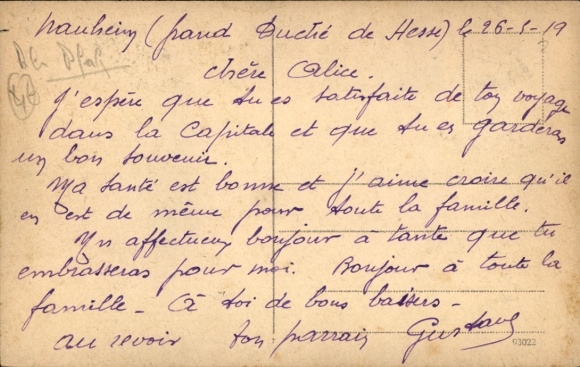 Nauheim (Grand Duché de Hesse) le 26-5-19
Chère Alice.
J'espère que tu es satisfaite de ton voyage
dans la Capitale et que tu en garderas
un bon souvenir.
Ma santé est bonne et j'aime croire qu'il
en est de même pour toute la famille.
Un affectueux bonjour à tante que tu
embrasseras pour moi. Bonjour à toute la
famille - à toi de bons baisers -
au revoir ton parrain Gustave
93022